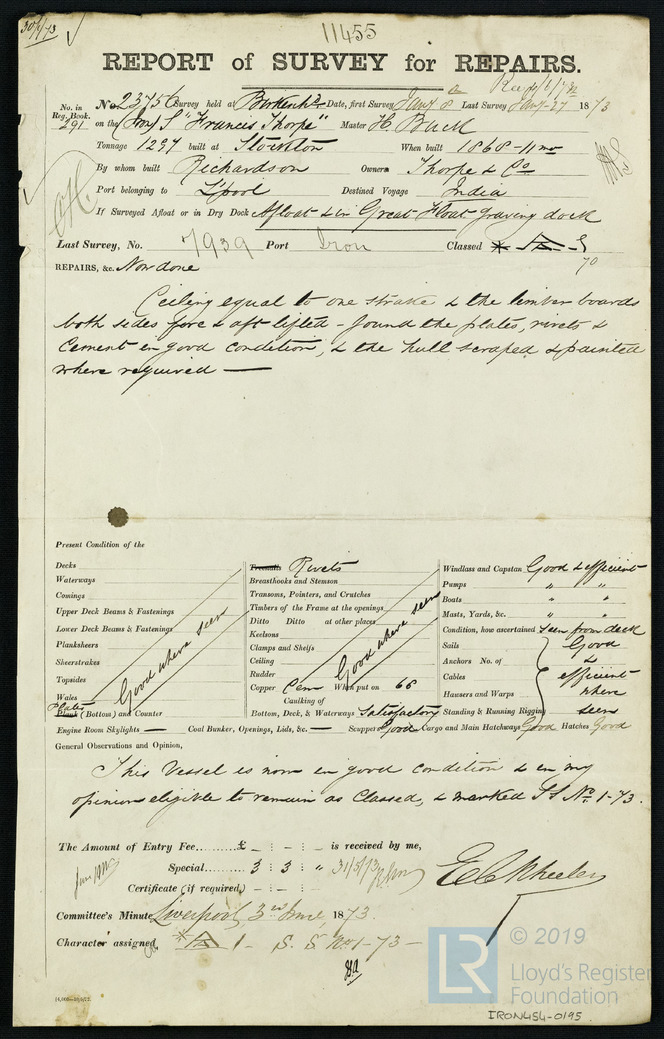 30/5/73
11455
REPORT of SURVEY for REPAIRS.
No. in Reg. Book. 291
No. 23756 Survey held at Birkenhd Date, first Survey Jany 8 Last Survey Jany 27 1873
on the Iron S "Francis Thorpe" Master H. Buck
Tonnage 1297 built at Stockton When built 1868-11 mo
By whom built Richardson Owners Thorpe & Co
Port belonging to L'pool Destined Voyage India
If Surveyed Afloat or in Dry Dock Afloat & in Great Float graving dock
Last Survey, No. 7939 Port Iron Classed
70
REPAIRS, &c. Now done
Ceiling equal to one strake & the limber boards
both sides fore & aft lifted - found the plates, rivets &
Cement in good condition, & the hull scraped & painted
where required —
Present Condition of the
Decks
Waterways
Comings
Upper Deck Beams & Fastenings
Lower Deck Beams & Fastenings
Planksheers
Sheerstrakes
Topsides
Wales
Good where seen
Plates
Plank (Bottom) and Counter
Treenails Rivets
Breasthooks and Stemson
Transoms, Pointers, and Crutches
Timbers of the Frame at the openings
Ditto Ditto at other places
Keelsons
Clamps and Shelfs
Ceiling
Rudder
Good where seen
Copper Cem When put on 68
Caulking of
Bottom, Deck, & Waterways Satisfactory
Windlass and Capstan Good & efficient
Pumps " "
Boats " "
Masts, Yards, &c. " "
Condition, how ascertained Seen from deck
Sails Good
Anchors No. of &
Cables efficient
Hawsers and Warps where
Standing & Running Rigging seen
Engine Room Skylights — Coal Bunker, Openings, Lids, &c. — Scuppers Good Cargo and Main Hatchways Good Hatches Good
General Observations and Opinion,
This Vessel is now in good condition & in my
opinion eligible to remain as Classed, & marked SS No. 1-73.
The Amount of Entry Fee......... £ - : - : - is received by me,
Special........... 3 : 3 : " 31/5/73
Certificate (if required) - : - : -
E C Wheeler
Committee's Minute Liverpool, 3rd June 1873.
Character assigned A 1 - S. S. No 1-73 -
© 2019
LR
Lloyd's Register
Foundation
IRON454-0195